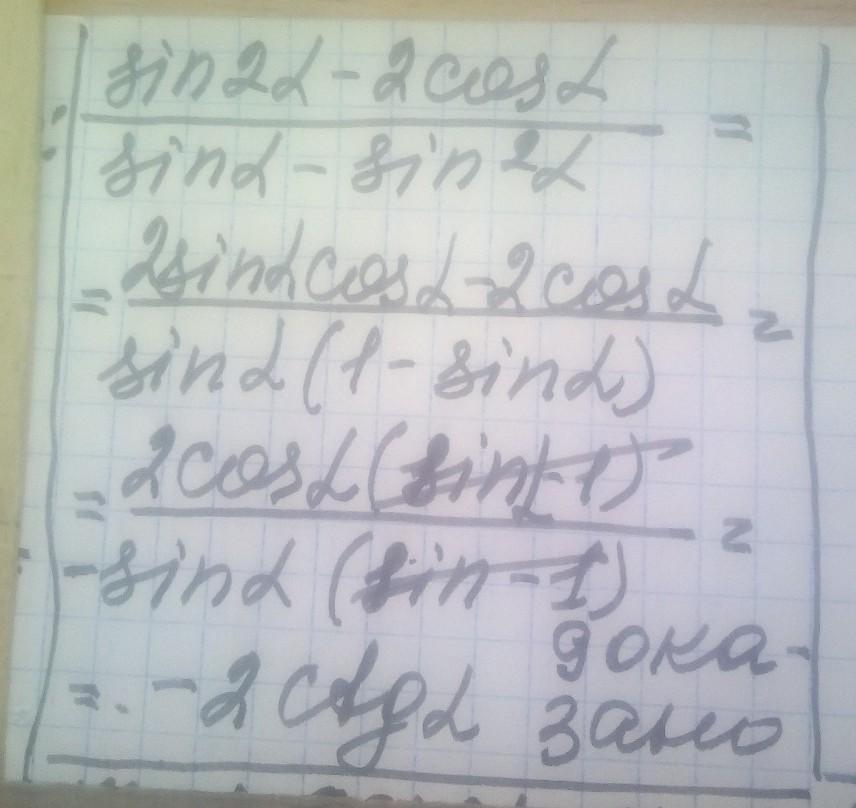 sin2α - 2cosα
=
sinα - sin²α
= 2sinαcosα - 2cosα =
sinα(1 - sinα)
= 2cosα(sinα - 1) =
-sinα(sin - 1)
= -2ctgα дока-
зано